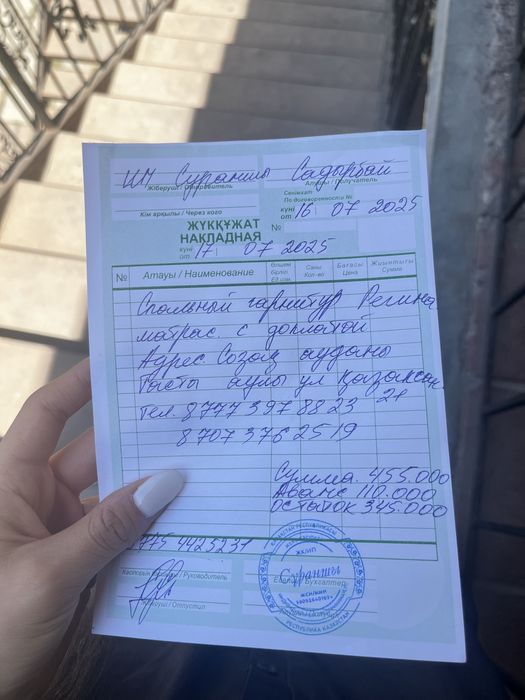 ИП Сураншы Садырбай
Жіберуші / Отправитель
Алушы / Получатель
Сенімхат
По доверенности №
Кім арқылы / Через кого
күні
от 16 07 2025
ЖҮКҚҰЖАТ №
НАКЛАДНАЯ
күні
от 17 07 2025
№ Атауы / Наименование Өлшем бірлігі Ед.изм. Саны Кол-во Бағасы Цена Жиынтығы Сумма
Спальный гарнитур Регина
матрас с доплатой
Адрес Созақ ауданы
Тасты аулы ул қазақстан
21
Тел. 8 777 397 88 23
8 707 376 25 19
Сумма 455.000
Аванс 110.000
Остаток 345.000
4425231
Руководитель
Бухгалтер
Жіберуші / Отпустил
ҚАЗАҚСТАН РЕСПУБЛИКАСЫ
ЖК/ИП
Сураншы
ЖСН/ИИН
РЕСПУБЛИКА КАЗАХСТАН